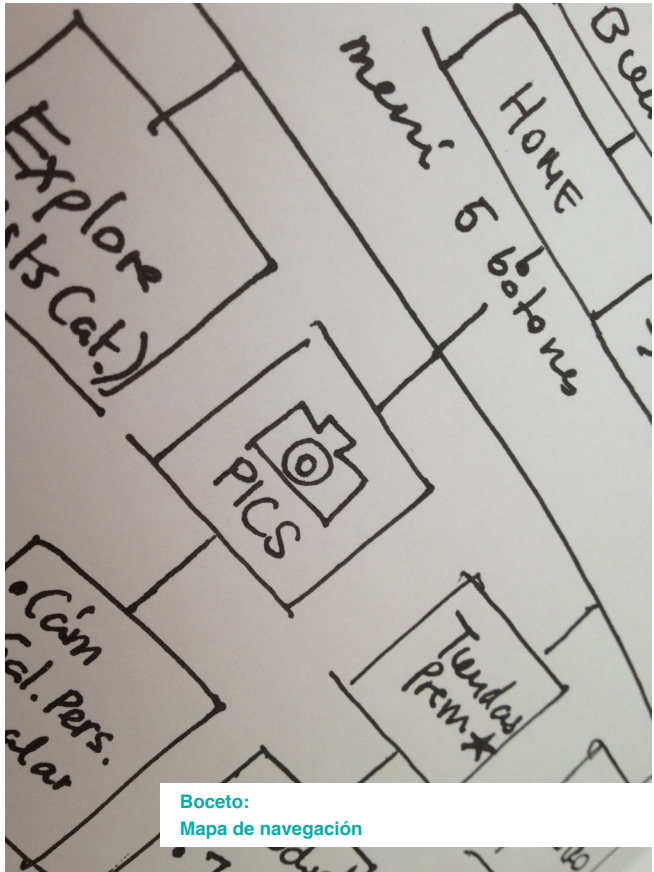 HOME
menú 5 botones
Explore
Cat.)
PICS
• Cám
Pers.
Tiendas
Prem ★
Boceto:
Mapa de navegación